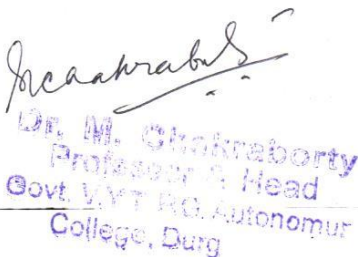 Mchakraborty
Dr. M. Chakraborty
Professor & Head
Govt. V.Y.T. P.G. Autonomur
College, Durg